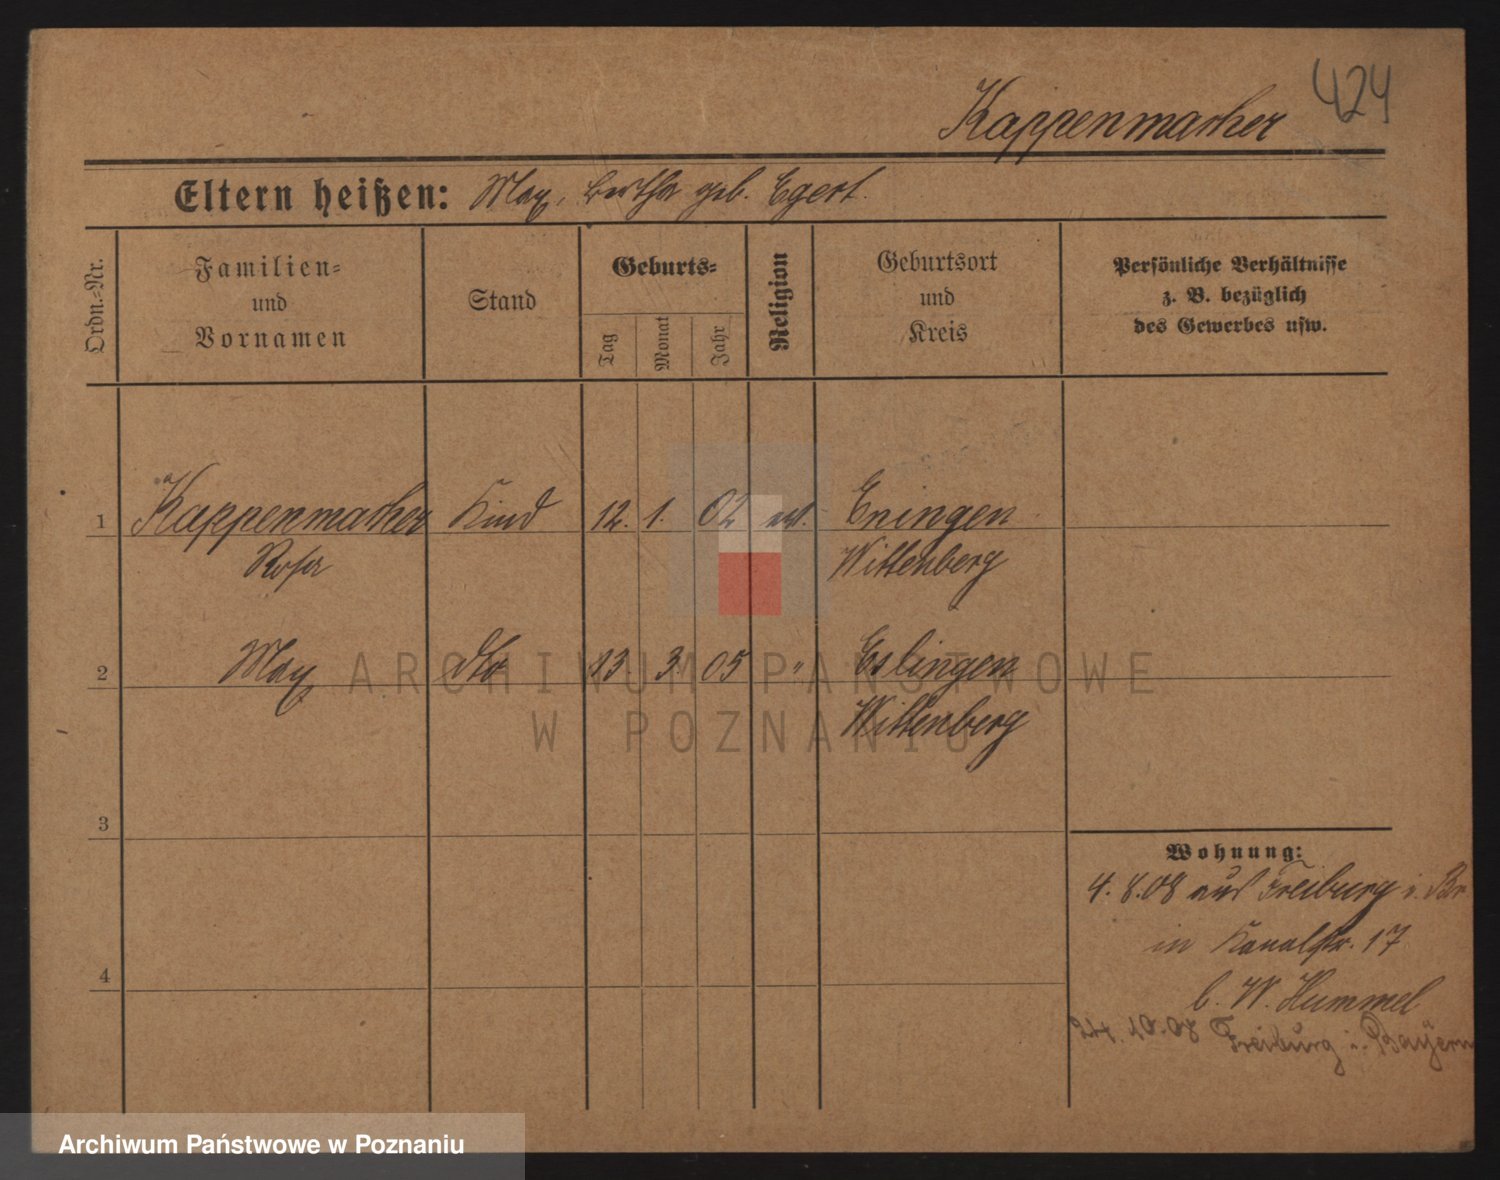 424
Kappenmacher
Eltern heißen: Max, Bertha geb. Egert.
Ordn.-Nr.
Familien-
und
Vornamen
Stand
Geburts-
Tag
Monat
Jahr
Religion
Geburtsort
und
Kreis
Persönliche Verhältnisse
z. B. bezüglich
des Gewerbes usw.
1 Kappenmacher Kind 12. 1. 02 Eningen
Rosa Wittenberg
2 Max dto 13 3 05 " Eslingen
Wittenberg
3
4
Wohnung:
4. 8. 08 aus Freiburg i. Br
in Kanalstr. 17
b. W. Hummel
24. 10. 08 Freiburg i. Bayern
ARCHIWUM PAŃSTWOWE
W POZNANIU
Archiwum Państwowe w Poznaniu